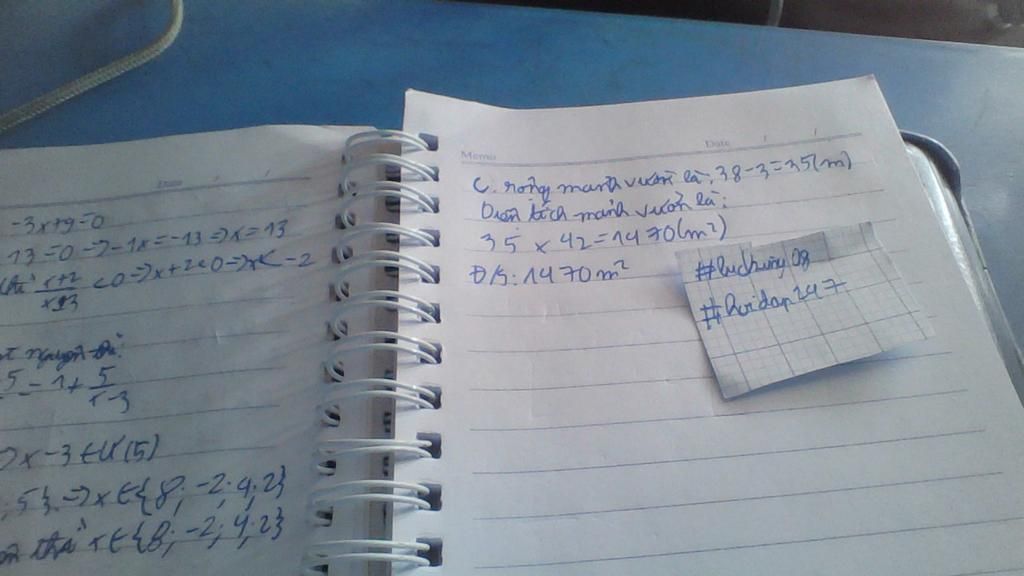 Date / /
-3x+9=0
13=0=>-1x=-13=>x=13
thì x+2 <0=>x+2<0=>x<-2
5=1+ 5
x-3
=>x-3∈Ư(5)
;5}.=>x∈{8;-2;4;2}
thì x∈{8;-2;4;2}
Memo Date / /
C. rộng mảnh vườn là: 38-3=35(m)
Diện tích mảnh vườn là:
35 x 42=1470(m²)
Đ/S: 1470m²
08
#hoidap247